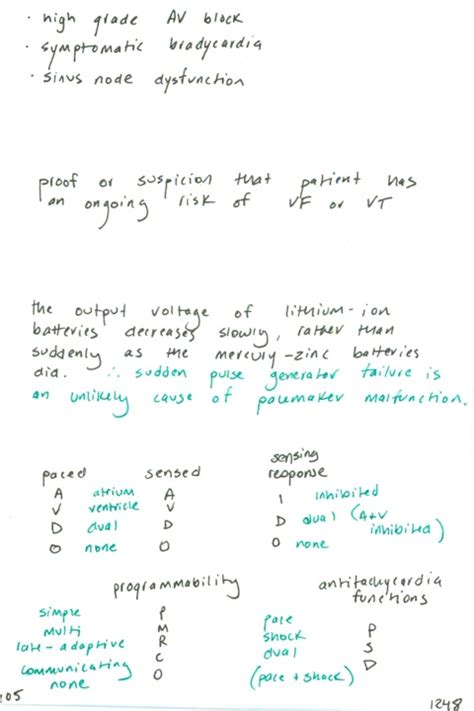 · high grade AV block
· symptomatic bradycardia
· sinus node dysfunction
proof or suspicion that patient has
an ongoing risk of VF or VT
the output voltage of lithium-ion
batteries decreases slowly, rather than
suddenly as the mercury-zinc batteries
did. ∴ sudden pulse generator failure is
an unlikely cause of pacemaker malfunction.
paced sensed sensing response
A atrium A I inhibited
V ventricle V D dual (A+V inhibited)
D dual D O none
O none O
programmability
simple P
multi M
rate-adaptive R
communicating C
none O
antitachycardia
functions
pace P
shock S
dual D
(pace + shock)
105
1248